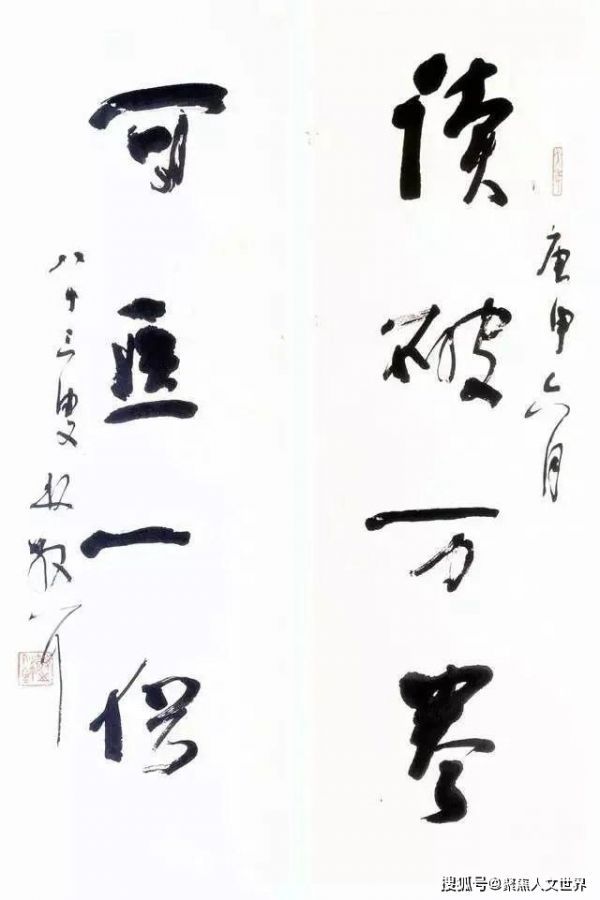 庚申六月
读破万卷
可医一俗
八十三叟林散耳
搜狐号@聚焦人文世界